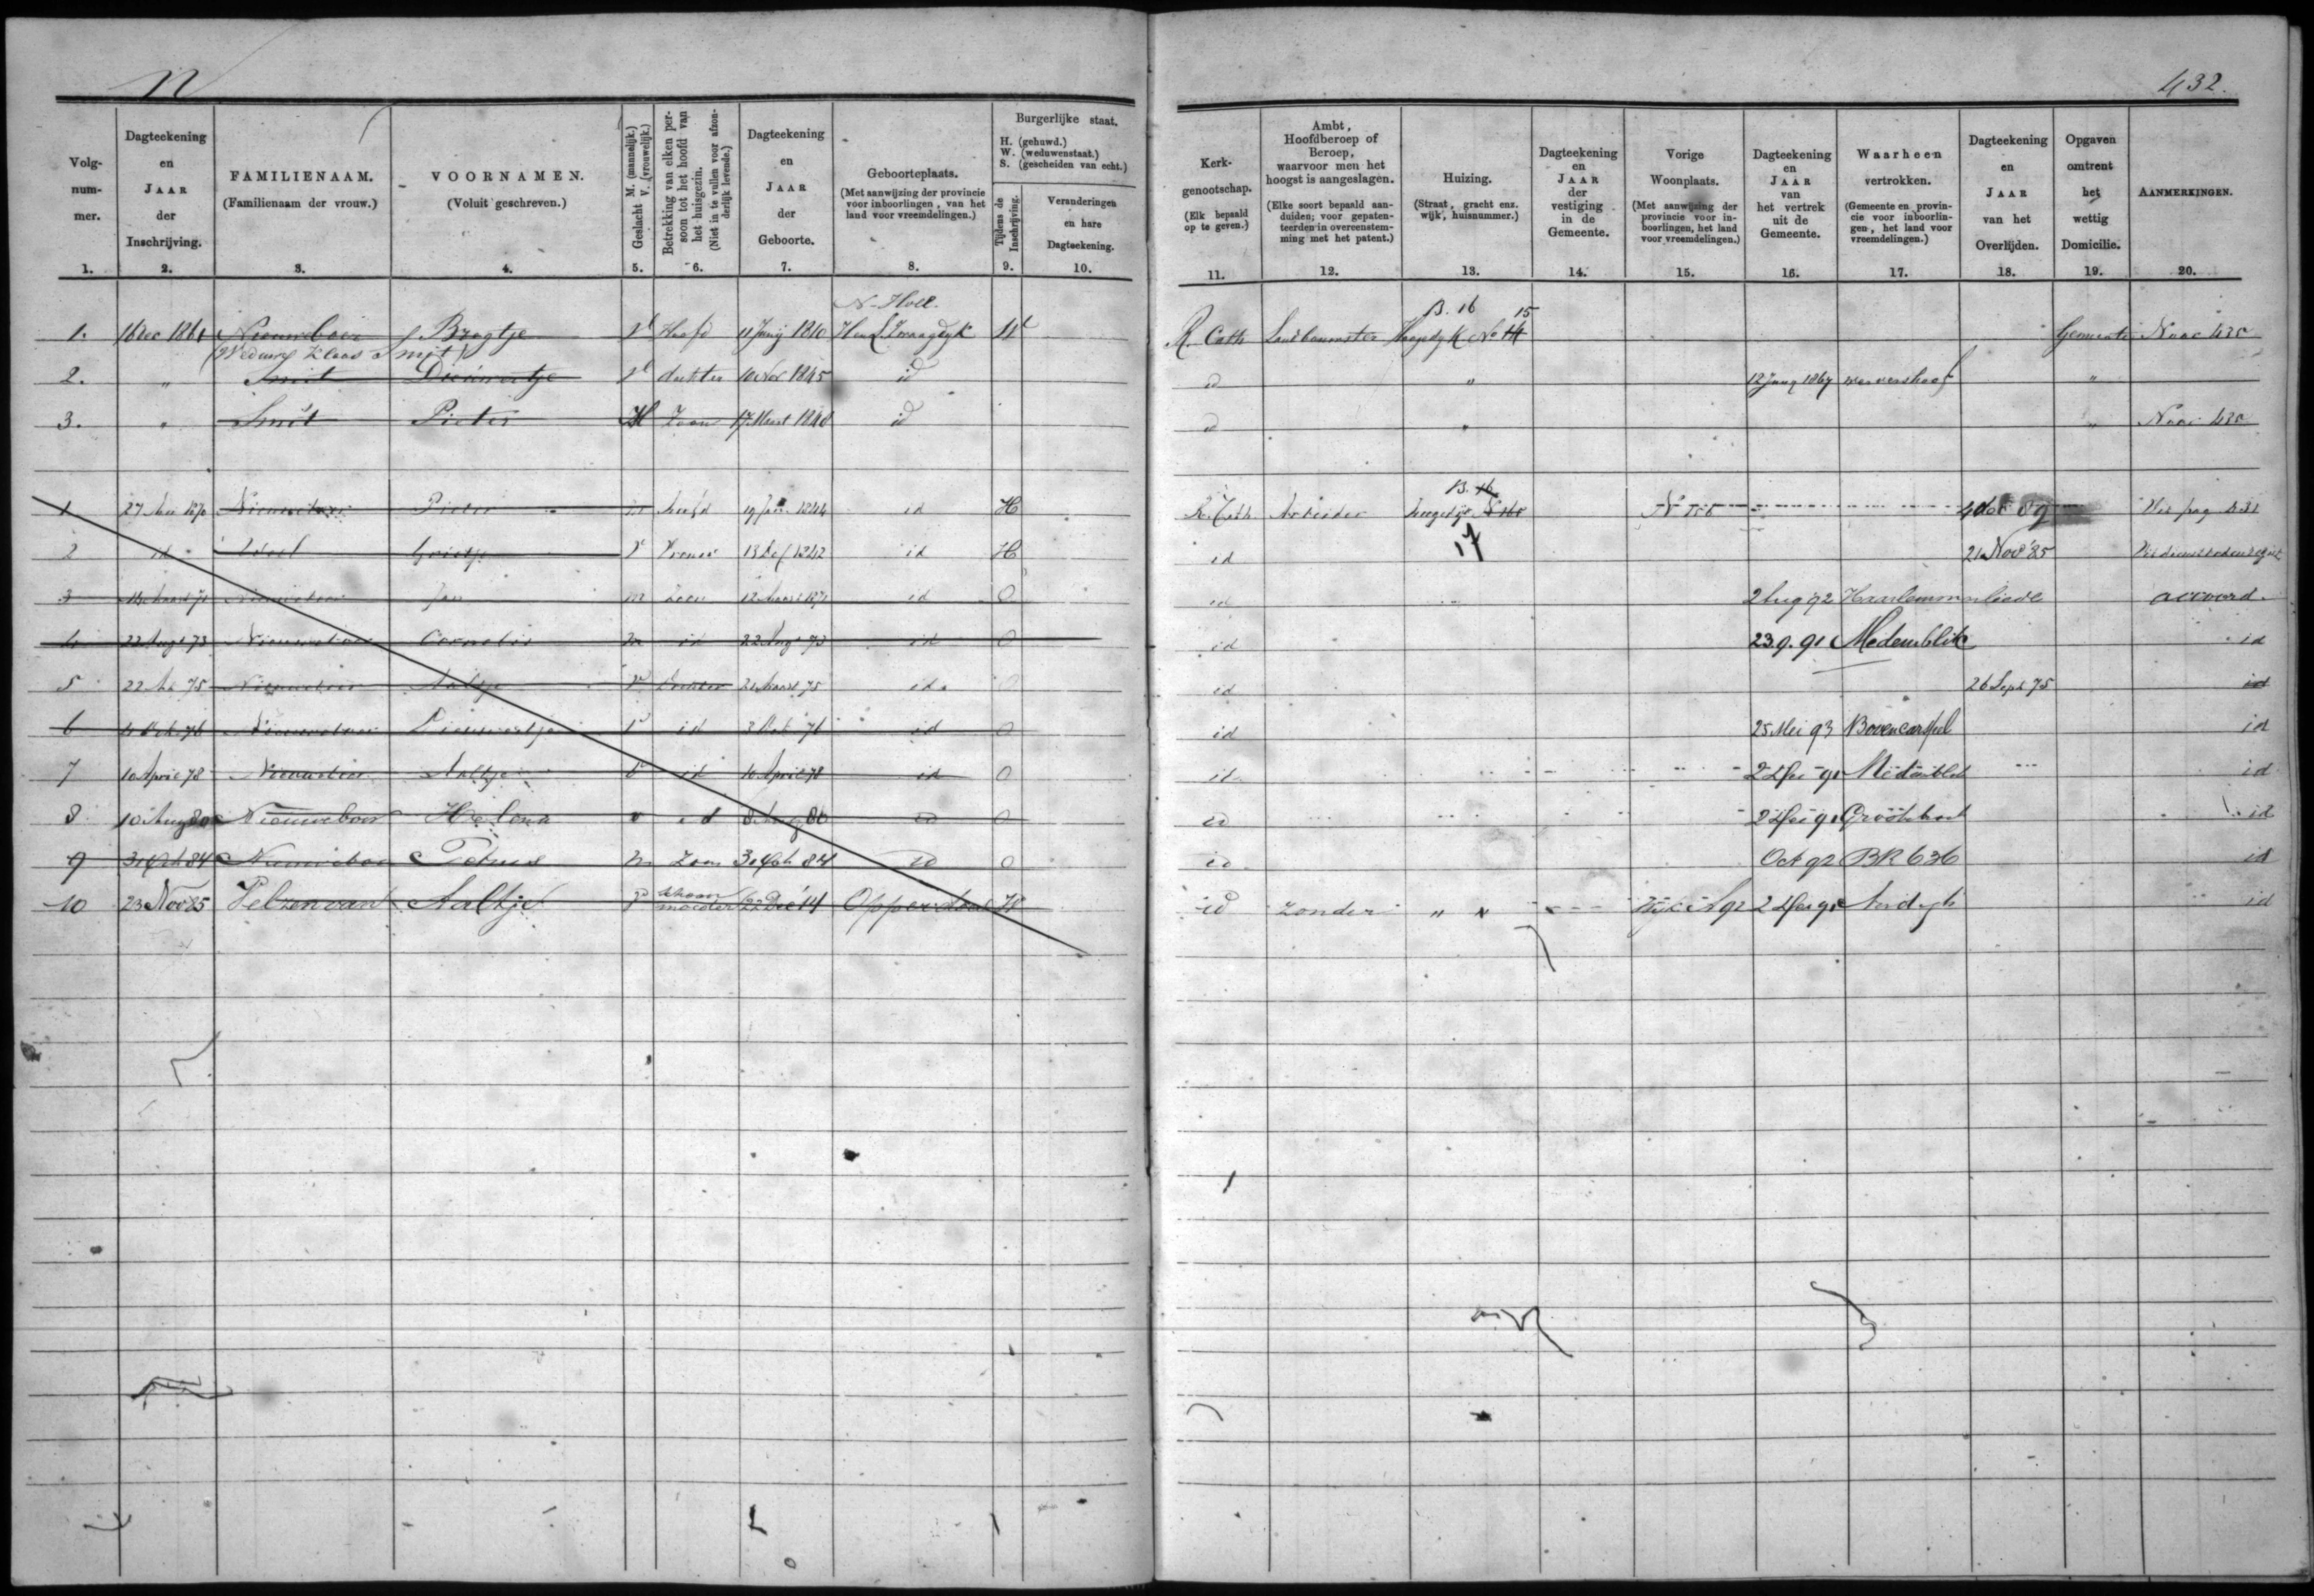 N
432.
Volgnummer. 1.
Dagteekening en JAAR der Inschrijving. 2.
FAMILIENAAM. (Familienaam der vrouw.) 3.
VOORNAMEN. (Voluit geschreven.) 4.
Geslacht M. (mannelijk.) V. (vrouwelijk.) 5.
Betrekking van elken persoon tot het hoofd van het huisgezin. (Niet in te vullen voor afzonderlijk levende.) 6.
Dagteekening en JAAR der Geboorte. 7.
Geboorteplaats. (Met aanwijzing der provincie voor inboorlingen, van het land voor vreemdelingen.) 8.
Burgerlijke staat. H. (gehuwd.) W. (weduwenstaat.) S. (gescheiden van echt.)
Tijdens de Inschrijving. 9.
Veranderingen en hare Dagteekening. 10.
Kerkgenootschap. (Elk bepaald op te geven.) 11.
Ambt, Hoofdberoep of Beroep, waarvoor men het hoogst is aangeslagen. (Elke soort bepaald aanduiden; voor gepatenteerden in overeenstemming met het patent.) 12.
Huizing. (Straat, gracht enz. wijk, huisnummer.) 13.
Dagteekening en JAAR der vestiging in de Gemeente. 14.
Vorige Woonplaats. (Met aanwijzing der provincie voor inboorlingen, het land voor vreemdelingen.) 15.
Dagteekening en JAAR van het vertrek uit de Gemeente. 16.
Waarheen vertrokken. (Gemeente en provincie voor inboorlingen, het land voor vreemdelingen.) 17.
Dagteekening en JAAR van het Overlijden. 18.
Opgaven omtrent het wettig Domicilie. 19.
AANMERKINGEN. 20.
N-Holl. B. 16 15
1. 16 Dec 1861 Nieuweboer Bragtje V Hoofd 11 Junij 1810 Zwaagdyk W R. Cath Landbouwster Hoogdyk No 14 Gemeente Naar 435
(Weduwe Klaas Smit)
2. " Smit Dieuwertje V dochter 10 Nov 1845 id id " 12 Juny 1867 Wervershoof "
3. " Smit Pieter M Zoon 17 Maart 1848 id id " " Naar 435
B. 16
1 27 1870 Nieuweboer Pieter m hoofd 19 Jan 1844 id H R. Cath Arbeider hoogedijk 89
2 id Grietje V Vrouw 13 1842 id H id 17 21 Nov '85
3 Maart 71 Nieuweboer Jan m Zoon 12 Maart 1871 id O id 2 Aug 92 Haarlemmerliede accoord.
4 22 Aug 73 Nieuweboer Cornelis m id 22 Aug 73 id O id 23.9.91 Medemblik id
5 22 75 Nieuweboer Aaltje V Dochter 21 Maart 75 id O id 26 Sept 75 id
6 4 Oct 76 Nieuweboer Dieuwertje V id 3 Oct 76 id O id 25 Mei 93 Bovencarspel id
7 10 April 78 Nieuweboer Aaltje V id 10 April 78 id O id 91 id
8 10 Aug 80 Nieuweboer Helena v id 8 Aug 80 id O id 91 Grootebroek id
9 84 Nieuweboer Petrus m Zoon 84 id O id Oct 92 BR 636 id
10 23 Nov 85 Velzen van Aaltje V schoonmoeder 22 Dec '14 Opperdoes W id zonder " " 91 id